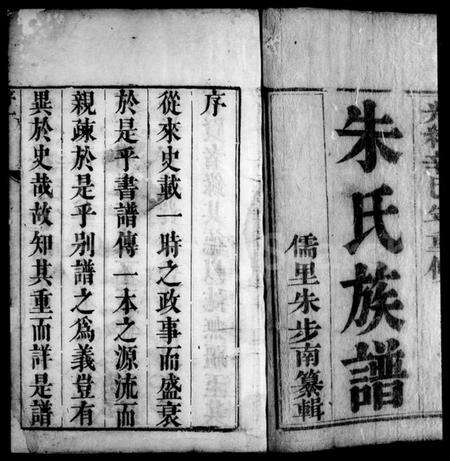 朱氏族譜
儒里朱步南纂輯
序
從來史載一時之政事而盛衰
於是乎書譜傳一本之源流而
親疎於是乎别譜之為義豈有
異於史哉故知其重而詳是譜